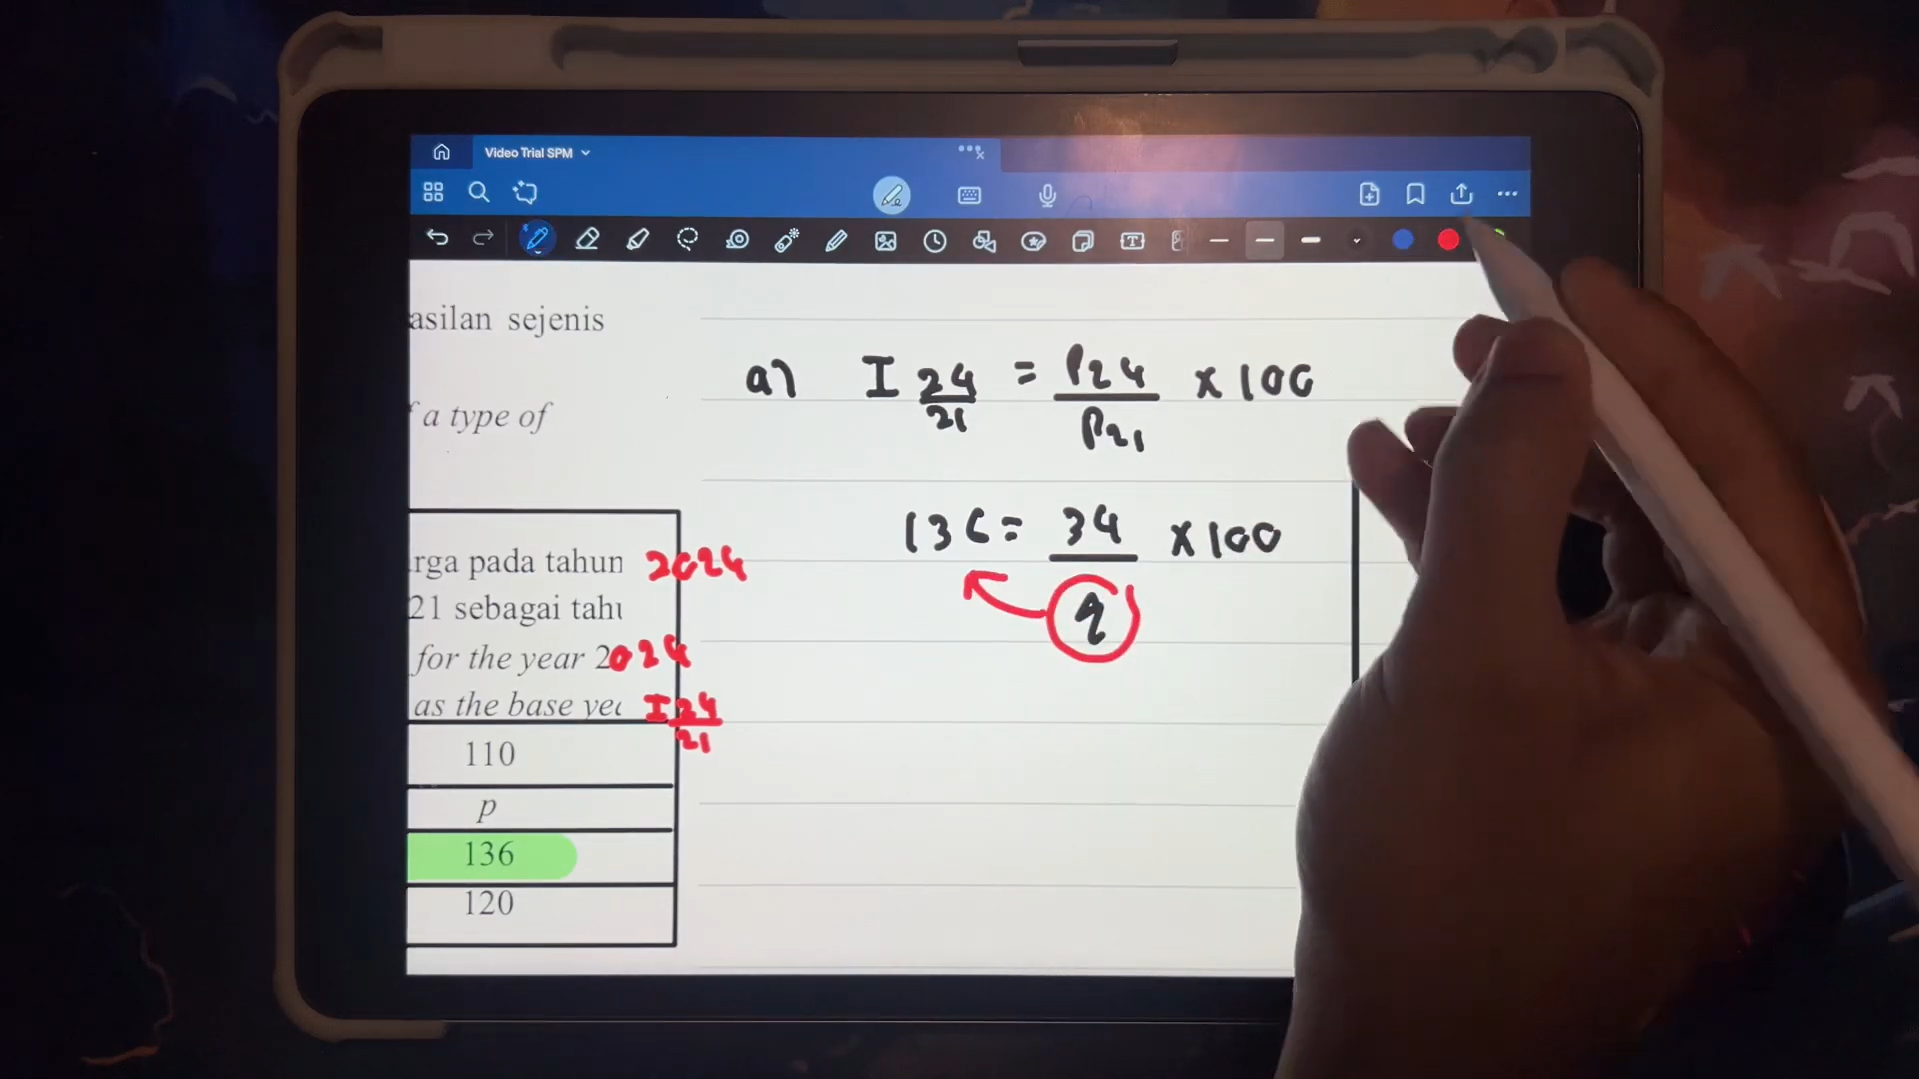 Video Trial SPM
asilan sejenis
a type of
rga pada tahun 2024
21 sebagai tahu
for the year 2024
as the base yea I 24/21
110
p
136
120
a) I 24/21 = P24/P21 x 100
136 = 34/q x 100